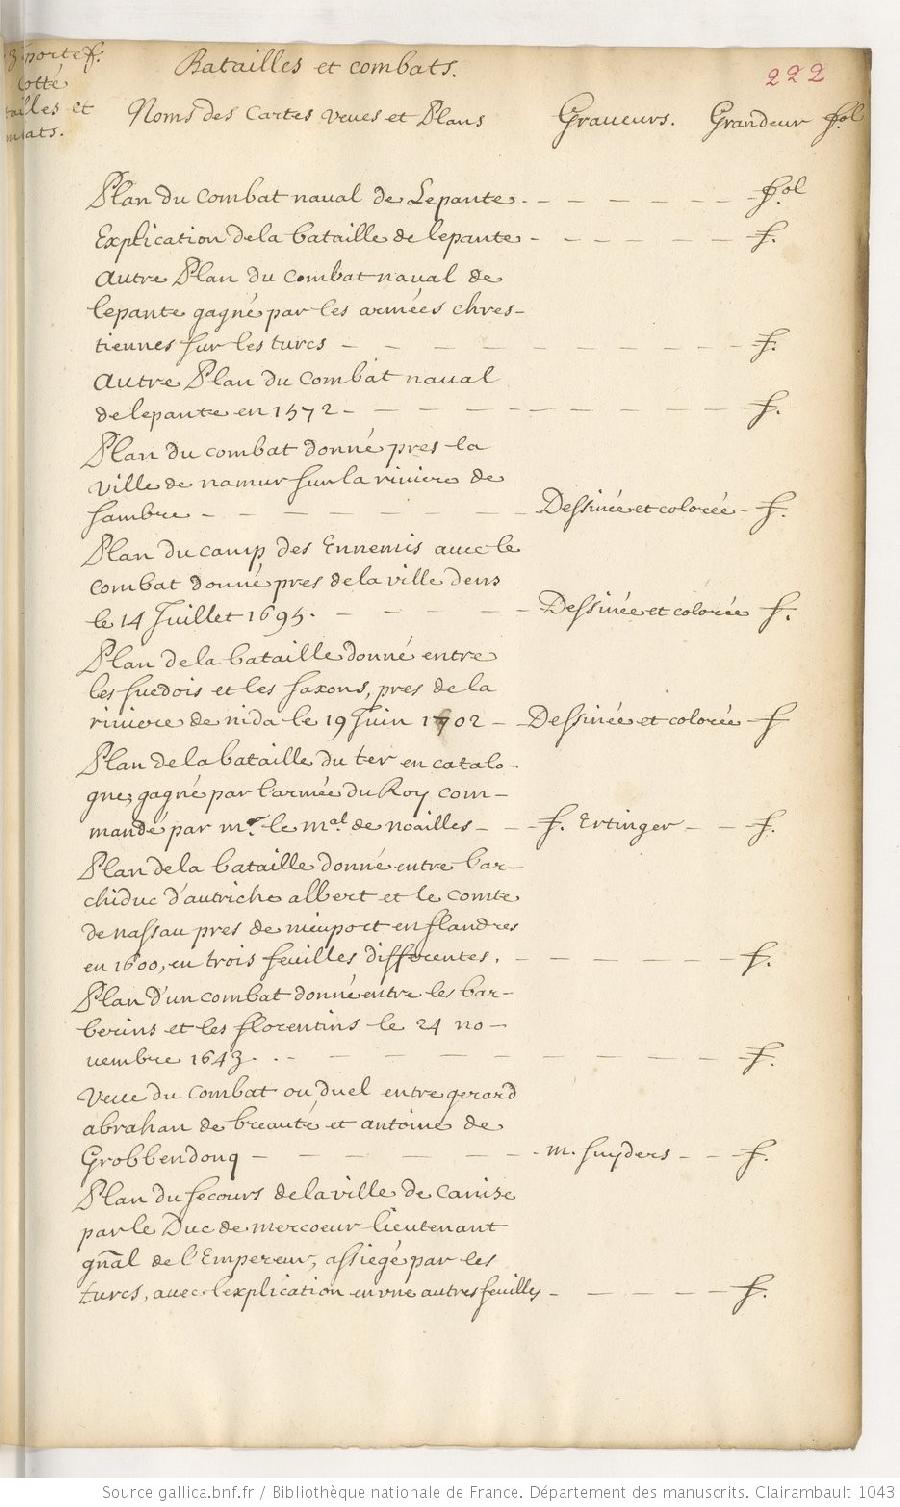 3 portef.
Cotté
tailles et
mbats.
Batailles et combats.
222
Noms des Cartes veues et Plans Graueurs. Grandeur fol
Plan du combat naual de Lepante - - - - - - fol
Explication de la bataille de lepante - - - - - - f.
autre Plan du Combat naual de
lepante gagné par les armées chres-
tiennes sur les turcs - - - - - - - - - f.
autre Plan du combat naual
de lepante en 1572 - - - - - - - - - f.
Plan du combat donné pres la
ville de namur sur la riuiere de
sambre - - - - - - - Dessinée et colorée - f.
Plan du camp des Ennemis auec le
combat donné pres de la ville dens
le 14 Juillet 1695. - - - - - Dessinée et colorée f.
Plan de la bataille donné entre
les suedois et les saxons, pres de la
riuiere de nida le 19 Juin 1702 - Dessinée et colorée - f
Plan de la bataille du ter en catalo-
gne, gagné par l'armée du Roy com-
mandé par mr. le mal. de noailles - - f. Ertinger - - f.
Plan de la bataille donné entre l'ar-
chiduc d'autriche albert et le comte
de nassau pres de nieuport en flandres
en 1600, en trois feuilles differentes. - - - - - - f.
Plan d'un combat donné entre les bar-
berins et les florentins le 24 no-
uembre 1643. - - - - - - - - - f.
Veue du Combat ou duel entre gerard
abrahan de breauté et antoine de
Grobbendonq - - - - - - - m. snyders - - f.
Plan du secours de la ville de canise
par le Duc de mercoeur lieutenant
gnãl de l'Empereur, assiegé par les
turcs, auec l'explication en vne autres feuilles - - - - - f.
Source gallica.bnf.fr / Bibliothèque nationale de France. Département des manuscrits. Clairambault 1043